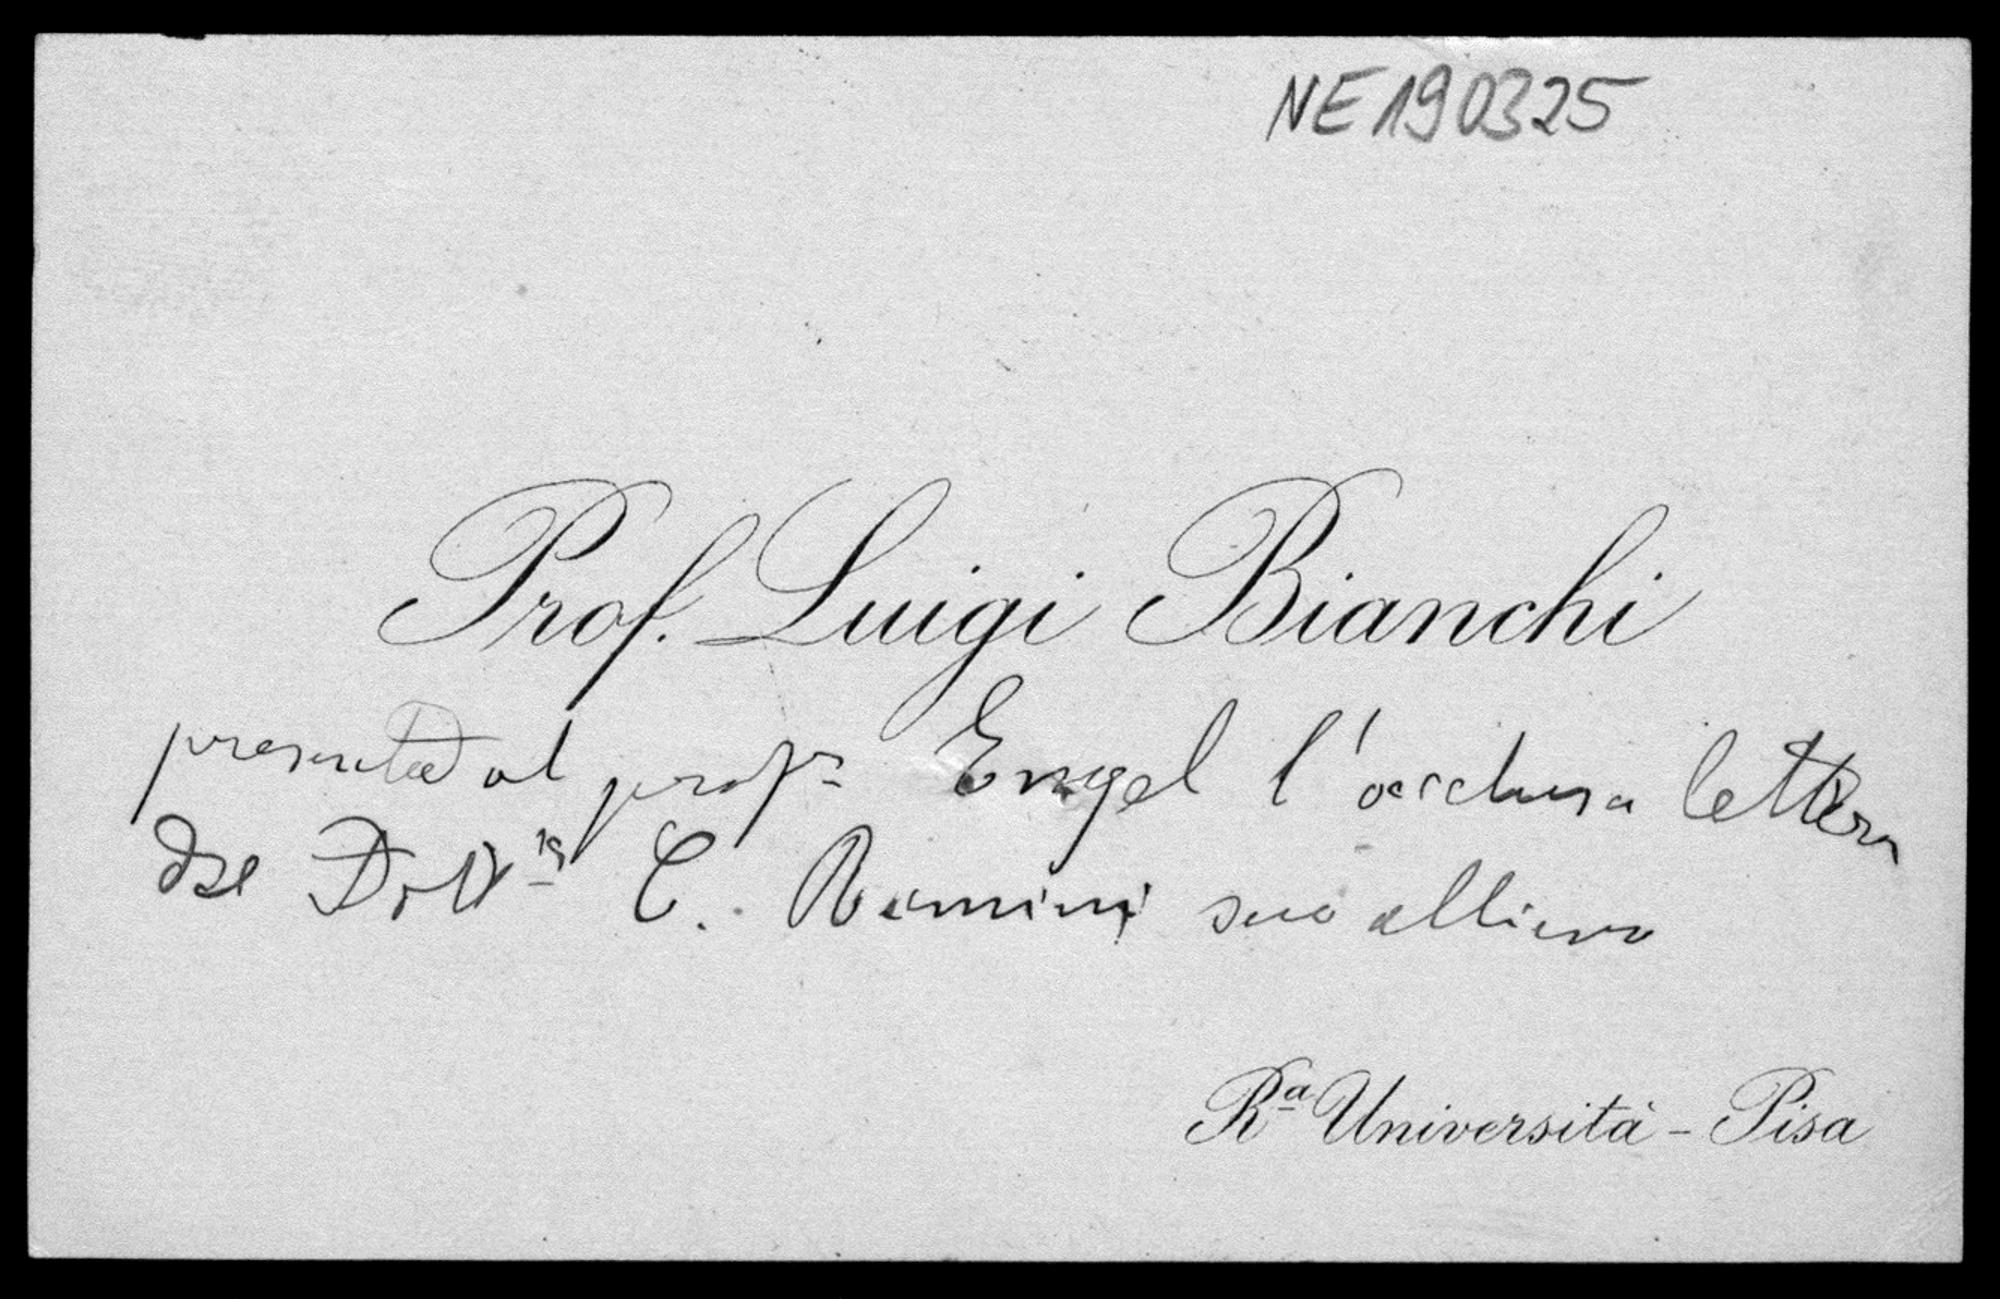 NE190325
Prof. Luigi Bianchi
presenta al profr Engel l'acclusa lettera
del Dottr C. Rimini suo allievo
Ra Università - Pisa